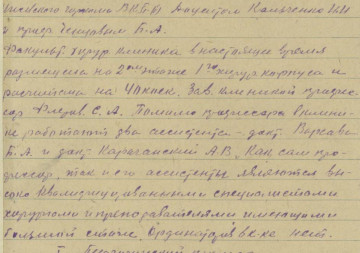 доцентом Кальченко И.И.
и проф. Б.А.
Факульт. хирур. клиника в настоящее время
размещена на 2ом этаже 1го хирур. корпуса и
расчитана на коек. Зав. клиникой профес-
сор Флеров С.А. Помимо профессора в клини-
ке работают два ассистента - доц.
Б.А. и доц. Карагански А.В. Как сам про-
фессор, так и его ассистенты являются вы-
соко квалифицированными специалистами
хирургами и преподавателями имеющими
большой стаж. Ординаторов в кл-ке нет.
I.